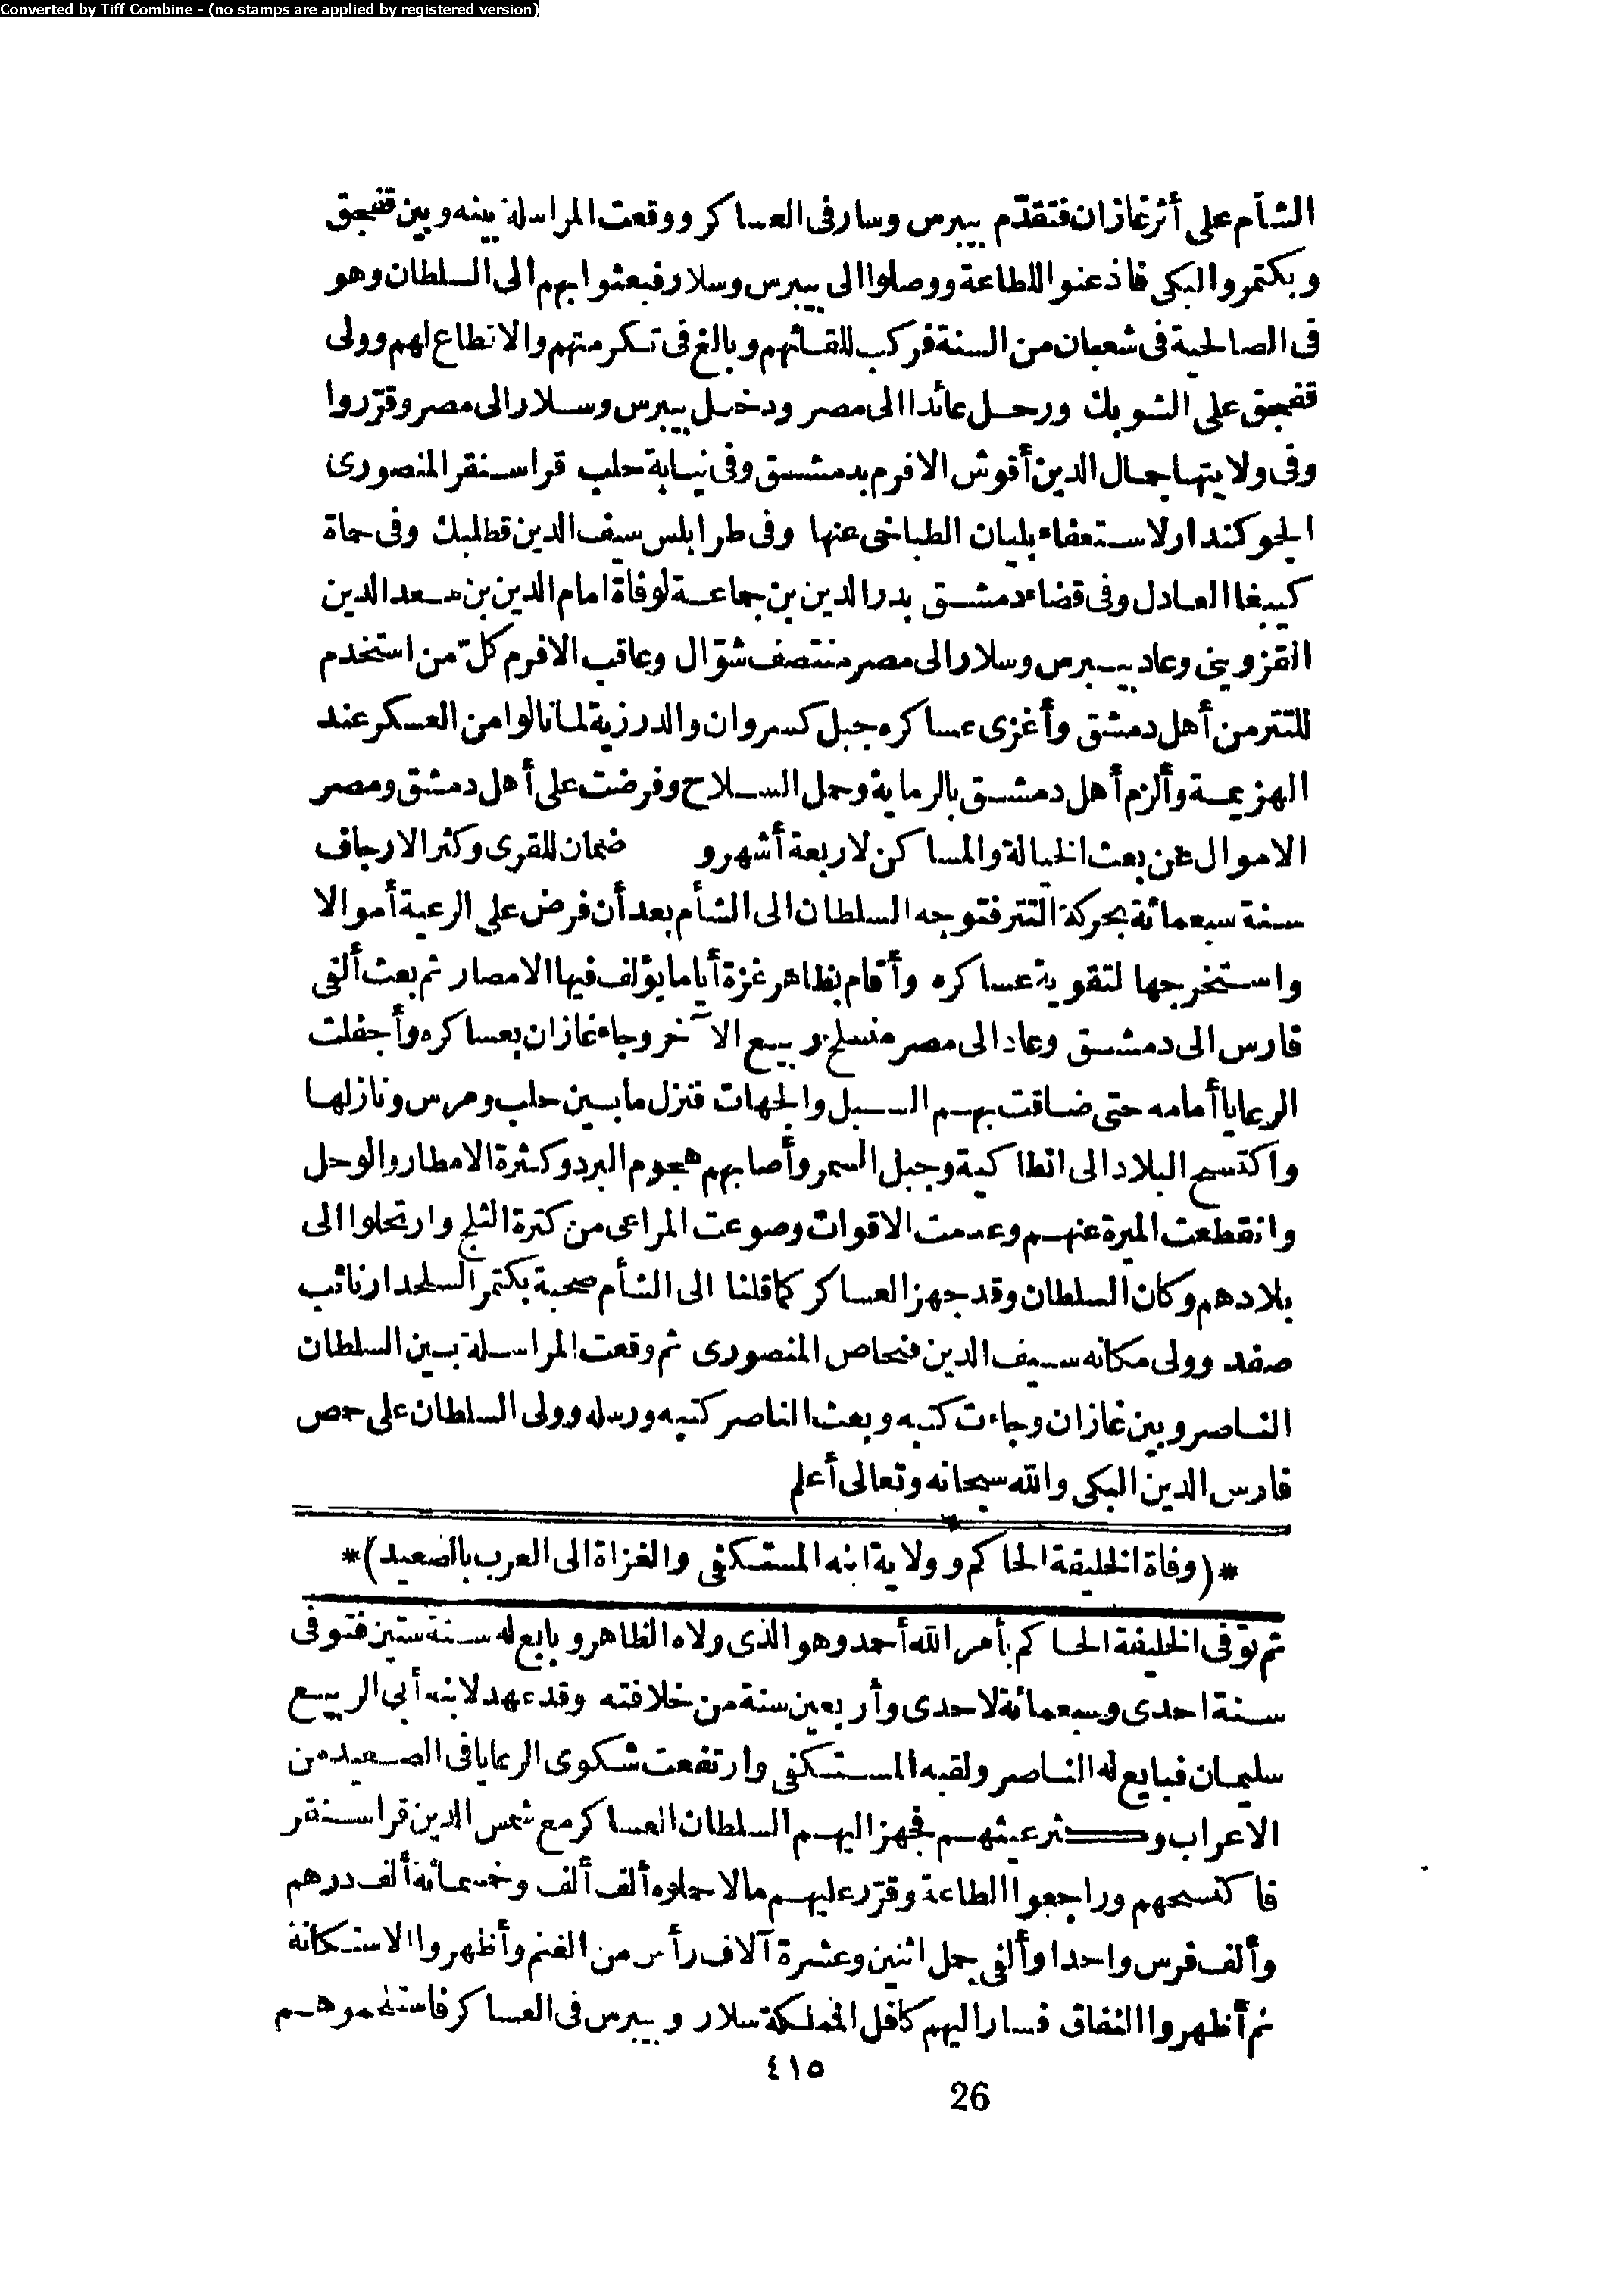 Converted by Tiff Combine - (no stamps are applied by registered version)
الشأم على أثر غازان فتقدّم بيبرس وسار فى العساكر ووقعت المراسلة بينه وبين قفجق
وبكتمر والبكى فاذعنوا للطاعة ووصلوا الى بيبرس وسلار فبعثوا بهم الى السلطان وهو
فى الصالحية فى شعبان من السنة فركب للقائهم وبالغ فى تكرمتهم والاقطاع لهم وولى
قفجق على الشوبك ورحل عائدا الى مصر ودخل بيبرس وسلار الى مصر وقرّروا
وفى ولايتها جمال الدين أقوش الافرم بدمشق وفى نيابة حلب قراسنقر المنصورى
الجوكندار لاستعفاء بلبان الطباخى عنها وفى طرابلس سيف الدين قطلبك وفى حماة
كتبغا العادل وفى قضاء دمشق بدر الدين بن جماعة لوفاة امام الدين بن سعد الدين
القزوينى وعاد بيبرس وسلار الى مصر منتصف شوّال وعاقب الافرم كلّ من استخدم
للتتر من أهل دمشق وأغزى عساكره جبل كسروان والدرزية لما نالوا من العسكر عند
الهزيمة وألزم أهل دمشق بالرماية وحمل السلاح وفرضت على أهل دمشق ومصر
الاموال عن بعث الخيالة والمساكن لاربعة أشهر و ضمان للقرى وكثر الارجاف
سنة سبعمائة بحركة التتر فتوجه السلطان الى الشأم بعد أن فرض على الرعية أموالا
واستخرجها لتقوية عساكره وأقام بظاهر غزة أياما يؤلف فيها الامصار ثم بعث ألفى
فارس الى دمشق وعاد الى مصر منسلخ ربيع الآخر وجاء غازان بعساكره وأجفلت
الرعايا أمامه حتى ضاقت بهم السبل والجهات فنزل ما بين حلب ومرس ونازلها
واكتسح البلاد الى انطاكية وجبل السمر وأصابهم هجوم البرد وكثرة الامطار والوحل
وانقطعت الميرة عنهم وعدمت الاقوات وصوعت المراعى من كثرة الثلج وارتحلوا الى
بلادهم وكان السلطان وقد جهز العساكر كما قلنا الى الشأم صحبة بكتمر السلحدار نائب
صفد وولى مكانه سيف الدين فنحاص المنصورى ثم وقعت المراسلة بين السلطان
الناصر وبين غازان وجاءت كتبه وبعث الناصر كتبه ورسله وولى السلطان على حمص
فارس الدين البكى والله سبحانه وتعالى أعلم
*(وفاة الخليفة الحاكم وولاية ابنه المستكفى والغزاة الى العرب بالصعيد)*
ثم توفى الخليفة الحاكم بأمر الله أحمد وهو الذى ولاه الظاهر وبايع له سنة ستين فتوفى
سنة احدى وسبعمائة لاحدى وأربعين سنة من خلافته وقد عهد لابنه أبى الربيع
سليمان فبايع له الناصر ولقبه المستكفى وارتفعت شكوى الرعايا فى الصعيد من
الاعراب وكثر عيثهم فجهز اليهم السلطان العساكر مع شمس الدين قراسنقر
فاكتسحهم وراجعوا الطاعة وقرّر عليهم مالا حملوه ألف ألف وخمسمائة ألف درهم
وألف فرس واحدا وألفى جمل اثنين وعشرة آلاف رأس من الغنم وأظهروا الاستكانة
ثم أظهروا النفاق فسار اليهم كافل المملكة سلار وبيبرس فى العساكر فاستلحموهم
٤١٥
26